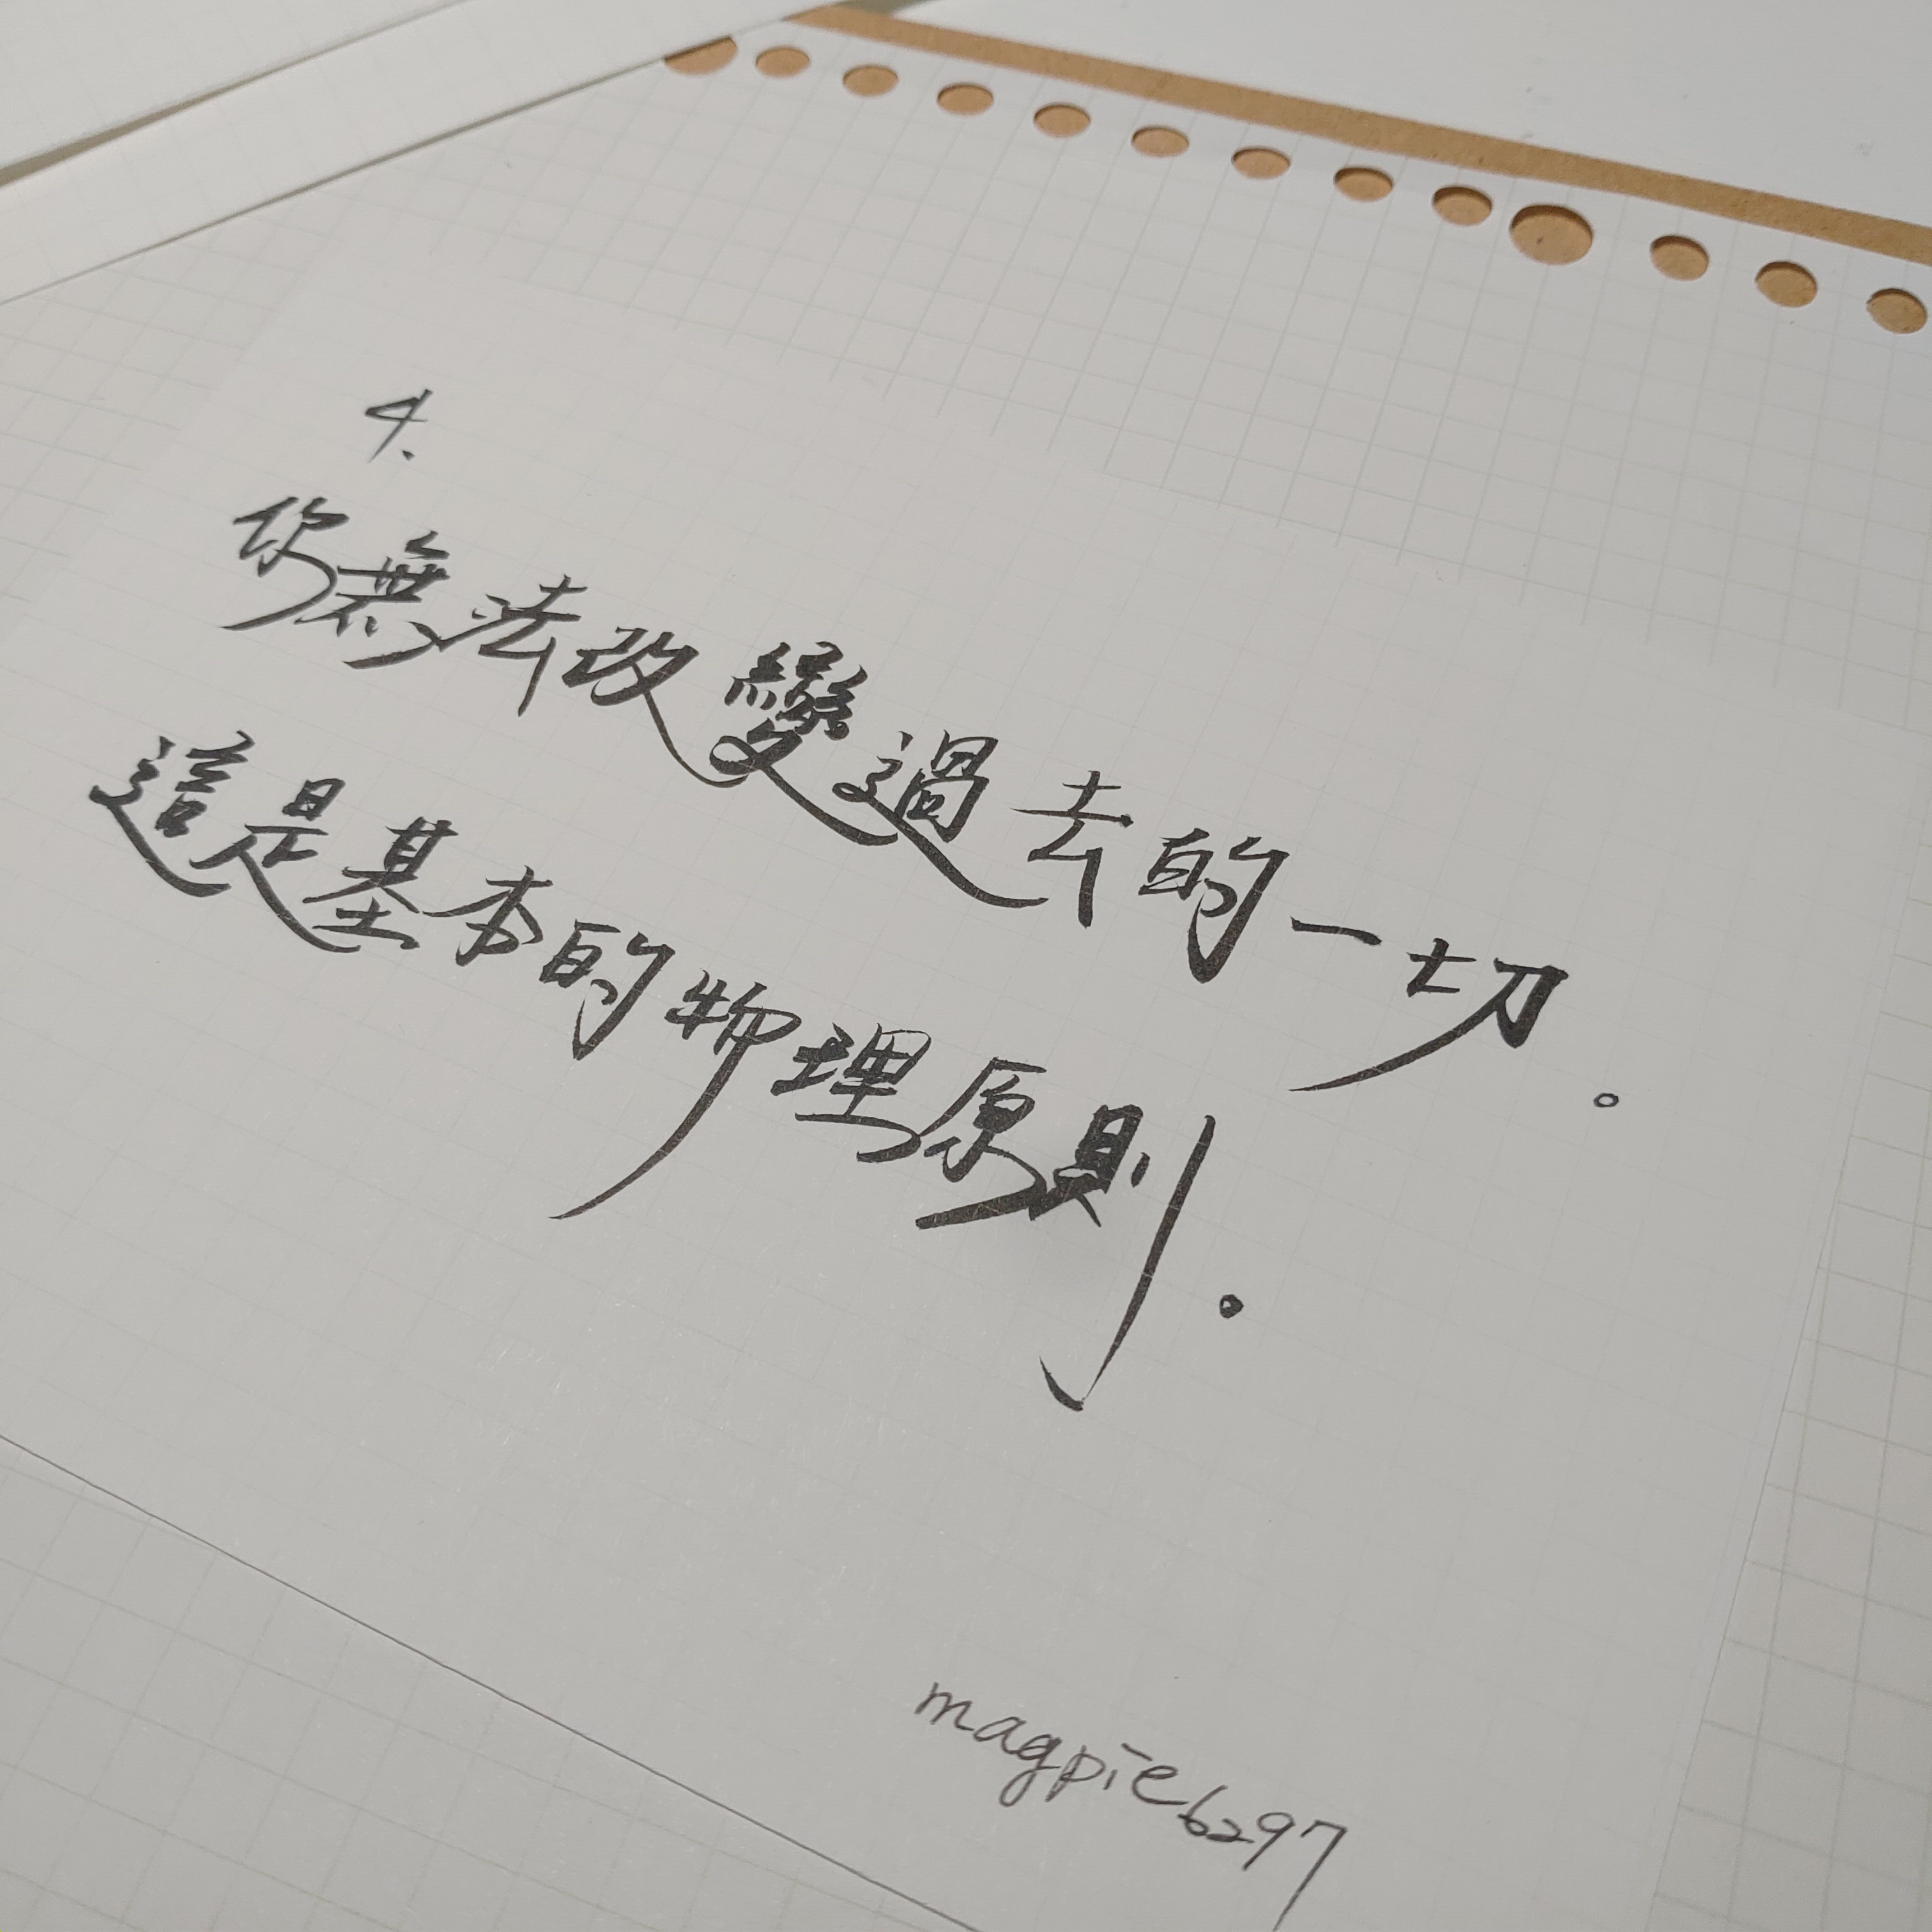 4.
你無法改變過去的一切。
這是基本的物理原則.
magpie6297